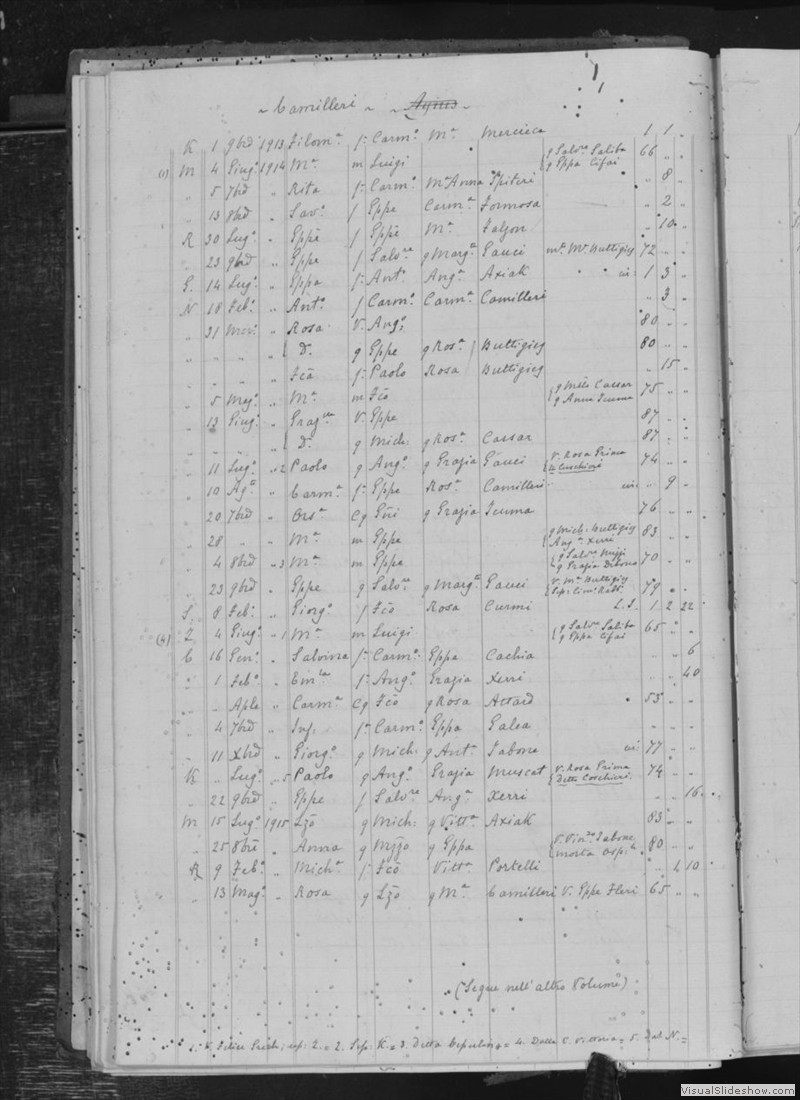 ~ Camilleri ~ Agius ~
K 1 9brē 1913 Filomᵃ f. Carmᵒ Mᵃ Mercieca 1 1 "
(1) M 4 Giugᵒ 1914 Mᵃ m Luigi { g Salvʳᵉ Saliba g Gppa Cifai 66 " "
" 5 7brē " Rita f. Carmᵒ Mᵃ Anna Spiteri " 8 "
" 13 8brē " Savᵃ f Gppe Carmᵃ Formosa " 2 "
R 30 Lugᵒ " Gppe f Gppe Mᵃ Falzon " 10 "
" 23 9brē " Gppe f Salvʳᵉ g Margᵗᵃ Gauci mᵗᵒ Mᵃ Buttigieg 72 " "
G. 14 Lugᵒ " Gppa f. Antᵒ Angᵃ Axiak 1 3 "
N 18 Febᵒ " Antᵒ f Carmᵒ Carmᵃ Camilleri " 3 "
" 31 Marᵒ " Rosa V. Angᵒ 80 " "
" " " " { Dᵃ g Gppe g Rosᵃ Buttigieg 80 " "
" " " Fcō f. Paolo Rosa Buttigieg " 15 "
" 5 Magᵒ " Mᵃ m Fcō { g Melo Cassar g Anna Scuma 75 " "
" 13 Giugᵒ " V. Gppe 87 " "
" " " " { Dᵃ g Mich: g Rosᵃ Cassar 87 " "
" 11 Lugᵒ " 2 Paolo g Angᵒ g Grazia Gauci V. Rosa Prima 74 " "
" 10 Agᵗᵒ " Carmᵃ f. Gppe Rosᵃ Camilleri " 9 "
" 20 7brē " Orsᵃ Cg g Grazia Scuma 76 " "
" 28 " " Mᵃ m Gppe { g Mich: Buttigieg Angᵃ Xerri 83 " "
" 4 8brē " 3 Mᵃ m Gppe { g Salvʳᵉ g Grazia Debono 70 " "
" 23 9brē " Gppe g Salvʳᵉ g Margᵗᵃ Gauci V. Mᵃ Buttigieg 79 " "
S. 8 Febᵒ " Giorgᵒ f Fcō Rosa Curmi L.S. 1 2 22
(4) Z 4 Giugᵒ " 1 Mᵃ m Luigi { g Salvʳᵉ Saliba g Gppa Cifai 65 " "
C 16 Genᵒ " Salvina f. Carmᵒ Gppa Cachia " " 6
" 1 Febᵒ " f. Angᵒ Grazia Xerri " " 40
" " Aple " Carmᵃ Cg Fcō g Rosa Attard 53 " "
" 4 7brē " Inf. f. Carmᵒ Gppa Galea " " "
" 11 Xbrē " Giorgᵒ g Mich: g Antᵃ Tabone 77 " "
K " Lugᵒ " 5 Paolo g Angᵒ Grazia Muscat V. Rosa Prima { detta Coschieri 74 " "
" 22 9brē " Gppe f Salvʳᵉ Angᵃ Xerri " " 16
M 15 Lugᵒ 1915 Lzō g Mich: g Vittᵃ Axiak 83 " "
" 25 8brē " Anna g Mzzo g Gppa { V. Vinᶻᵒ Tabone morta Ospˡᵉ 80 " "
R 9 Febᵒ " Michᵃ f. Fcō Vittᵃ Portelli " 4 10
" 13 Magᵒ " Rosa g Lzō g Mᵃ Camilleri V. Gppe Fleri 65 " "
(Segue nell'altro Volume)
2. = 2. Sep. K. = 3. Detta = 4. Dalla V. Vittoria = 5. Dal N. =
VisualSlideshow.com